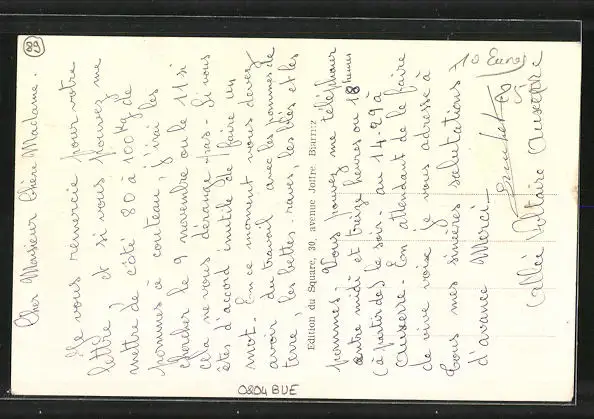 Cher Monsieur Chère Madame.
Je vous remercie pour votre
lettre, et si vous pouvez me
mettre de côté 80 à 100 kg de
pommes à couteau, j'irai les
chercher le 9 novembre ou le 11 si
cela ne vous dérange pas. Si vous
êtes d'accord inutile de faire un
mot. En ce moment vous devez
avoir du travail avec les pommes de
terre, les betteraves, les blés et les
Edition du Square, 30, avenue Joffre Biarritz
pommes. Vous pouvez me téléphoner
entre midi et treize heures ou 18 heures
(à partir de) le soir. au 14-29 à
Auxerre. En attendant de le faire
de vive voix je vous adresse à
tous mes sincères salutations
d'avance Merci.
70
Allée Voltaire Auxerre
89
0804 BUE